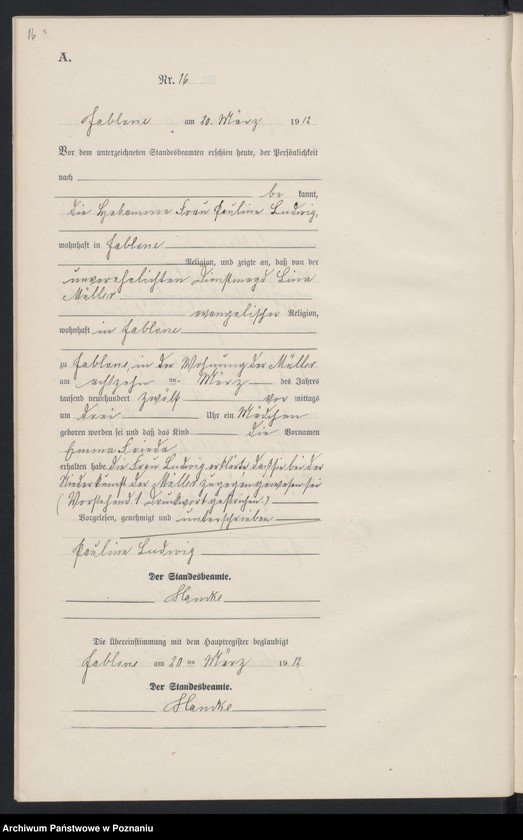 16
A.
Nr. 16
Jablone am 20. März 1912
Vor dem unterzeichneten Standesbeamten erschien heute, der Persönlichkeit
nach
be kannt,
die Hebamme Frau Pauline Ludwig,
wohnhaft in Jablone
Religion, und zeigte an, daß von der
unverehelichten Dienstmagd Lina
Müller
evangelischer Religion,
wohnhaft in Jablone
zu Jablone, in der Wohnung der Müller
am achtzehn ten März des Jahres
tausend neunhundert zwölf vor mittags
um drei Uhr ein Mädchen
geboren worden sei und daß das Kind die Vornamen
Emma Frieda
erhalten habe. Die Frau Ludwig erklärte, daß sie bei der
Niederkunft der Müller zugegen gewesen sei
(Vorstehend 1 Druckwort gestrichen.)
Vorgelesen, genehmigt und unterschrieben
Pauline Ludwig
Der Standesbeamte.
Die Übereinstimmung mit dem Hauptregister beglaubigt
Jablone am 20 ten März 1912
Der Standesbeamte.
Archiwum Państwowe w Poznaniu